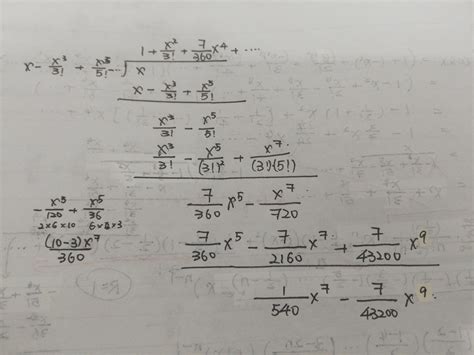 1 + x²/3! + 7/360 x⁴ + ....
x - x³/3! + x⁵/5! ... √ x
x - x³/3! + x⁵/5!
x³/3! - x⁵/5!
x³/3! - x⁵/(3!)² + x⁷/(3!)(5!)
-x⁵/120 + x⁵/36
2×6×10 6×2×3
(10-3)x⁷/360
7/360 x⁵ - x⁷/720
7/360 x⁵ - 7/2160 x⁷ + 7/43200 x⁹
1/540 x⁷ - 7/43200 x⁹.